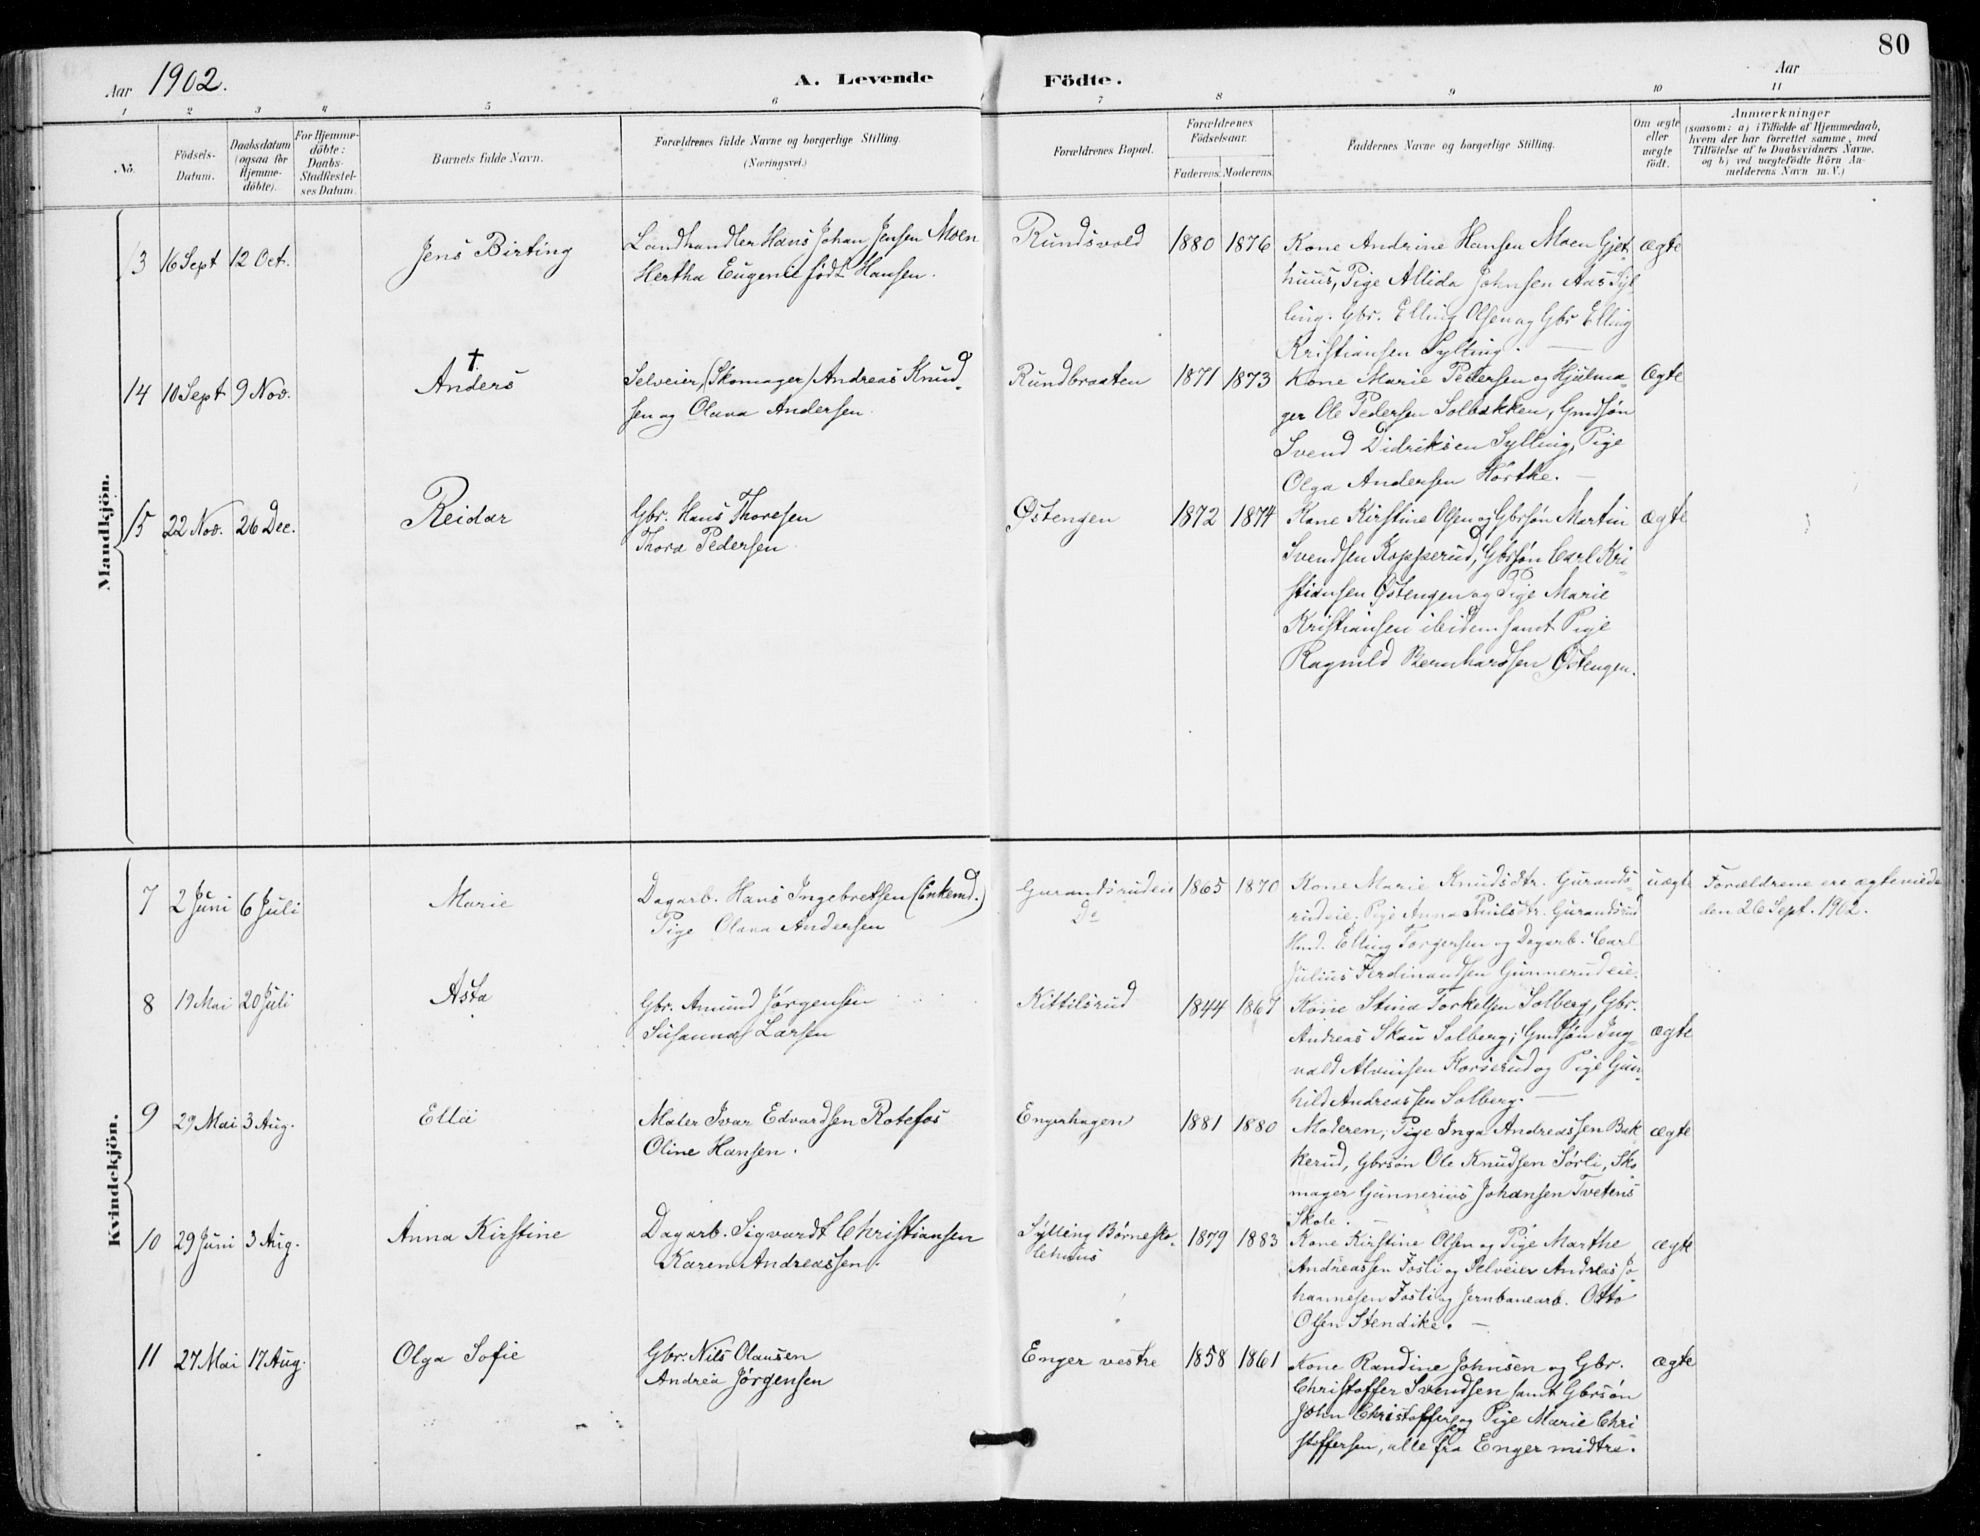 80
Aar 1902.
A. Levende Födte.
Aar
1 2 3 4 5 6 7 8 9 10 11
No.
Födsels-
Datum.
Daabsdatum
(ogsaa for
Hjemme-
døbte).
For Hjemme-
döbte:
Daabs-
Stadfæstel-
ses Datum.
Barnets fulde Navn.
Forældrenes fulde Navne og borgerlige Stilling.
(Næringsvei.)
Forældrenes Bopæl.
Forældrenes
Födselsaar.
Faderens. Moderens.
Faddernes Navne og borgerlige Stilling.
Om ægte
eller
uægte
födt.
Anmærkninger
(saasom: a) i Tilfælde af Hjemmedaab,
hvem der har forrettet samme, med
Tilföielse af to Daabsvidners Navne,
og b) ved uegtefödte Börn An-
melderens Navn m. V.)
Mandkjön.
13 16 Sept 12 Oct.
Jens Birting
Landhandler Hans Johan Jensen Moen
Hertha Eugenie født Hansen.
Rundsvold
1880 1876
Kone Andrine Hansen Moen Gjet-
huus, Pige Allida Johnsen Aas Syl-
ling. Gbr. Elling Olsen og Gbr Elling
Kristiansen Sylling. —
ægte
14 10 Sept 9 Nov.
†
Anders
Selveier, (Skomager) Andreas Knud-
sen og Olava Andersen.
Rundbraaten
1871 1873
Kone Marie Pedersen og Hjulma-
ger Ole Pedersen Solbakken, Gmdsøn
Svend Didriksen Sylling, Pige
Olga Andersen Hørthe. —
Ægte
15 22 Nov. 26 Dec.
Reidar
Gbr. Hans Thoresen
Thora Pedersen
Østengen
1872 1874
Kone Kirstine Olsen og Gbrsøn Martin
Svendsen Kopperud, Gbrsøn Carl Kri-
stiansen Østengen og Pige Marie
Kristiansen ibidem samt Pige
Ragnild Bernharssen Østengen.
ægte
Kvindekjön.
7 2 Juni 6 Juli
Marie
Dagarb. Hans Ingebretsen (Enkemd.)
Pige Olava Andersen
Gurandsrudeie
Do
1865 1870
Kone Marie Knudsdtr. Gurands-
rudeie, Pige Anna Paulsdtr. Gurandsrud
Hmd. Elling Torgersen og Dagarb. Carl
Julius Ferdinandsen Gunnerudeie.
uægte
Forældrene ere ægteviede
den 26 Sept. 1902.
8 19 Mai 20 Juli
Asta
Gbr. Amund Jørgensen
Susanna Larsen
Kittilsrud
1844 1867
Kone Stina Torkelsen Solberg, Gbr.
Andreas Skau Solberg; Gmdsøn Ing-
vald Alvinsen Korserud og Pige Gun-
hild Andreassen Solberg. —
ægte
9 29 Mai 3 Aug.
Ella
Maler Ivar Edvardsen Rotefos
Oline Hansen.
Engerhagen
1881 1880
Moderen, Pige Inga Andreassen Bak-
kerud, Gbrsøn Ole Knudsen Sørli, Sko
mager Gunnerius Johansen Tvetens
Skole. —
ægte
10 29 Juni 3 Aug.
Anna Kirstine
Dagarb. Sigvardt Christiansen
Karen Andreassen.
Sylling Børnesko-
lehuus
1879 1883
Kone Kirstine Olsen og Pige Marthe
Andreassen Fosli og Selveier Andreas Jo-
hannesen Fosli og Jernbanearb. Otto
Olsen Stendike. —
ægte
11 27 Mai 17 Aug.
Olga Sofie
Gbr. Nils Olausen
Andrea Jørgensen
Enger vestre
1858 1861
Kone Randine Johnsen og Gbr.
Christoffer Svendsen samt Gbrsøn
John Christoffersen og Pige Marie Chri
stoffersen, alle fra Enger midtre.
ægte